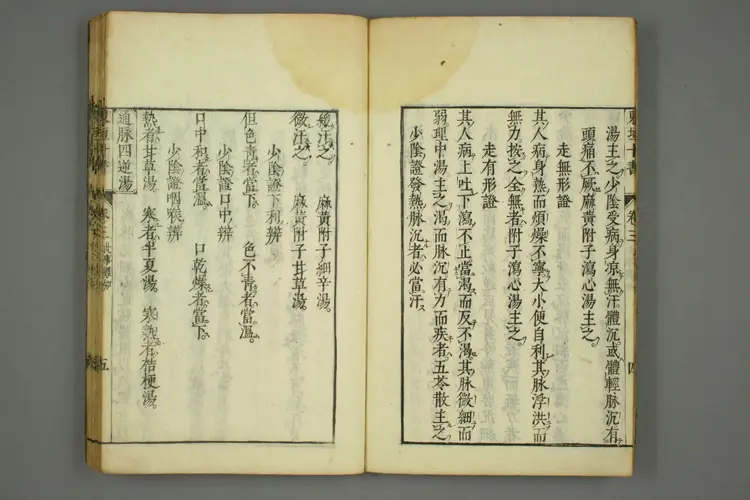 東垣十書
卷三
四
湯主之少陰受病身凉無汗體沉或體輕脉沉有
頭痛不厥麻黃附子瀉心湯主之
走無形證
其人病身熱而煩燥不寧大小便自利其脉浮洪而
無力按之全無者附子瀉心湯主之
走有形證
其人病上吐下瀉不止當渴而反不渴其脉微細而
弱理中湯主之渴而脉沉有力而疾者五苓散主之
少陰證發熱脉沉者必當汗
緩汗之 麻黃附子細辛湯
微汗之 麻黃附子甘草湯
少陰證下利辨
但色青者當下 色不青者當溫
少陰證口中辨
口中和者當溫 口乾燥者當下
少陰證咽喉辨
熱者甘草湯 寒者半夏湯 寒熱者桔梗湯
通脉四逆湯
東垣十書
五